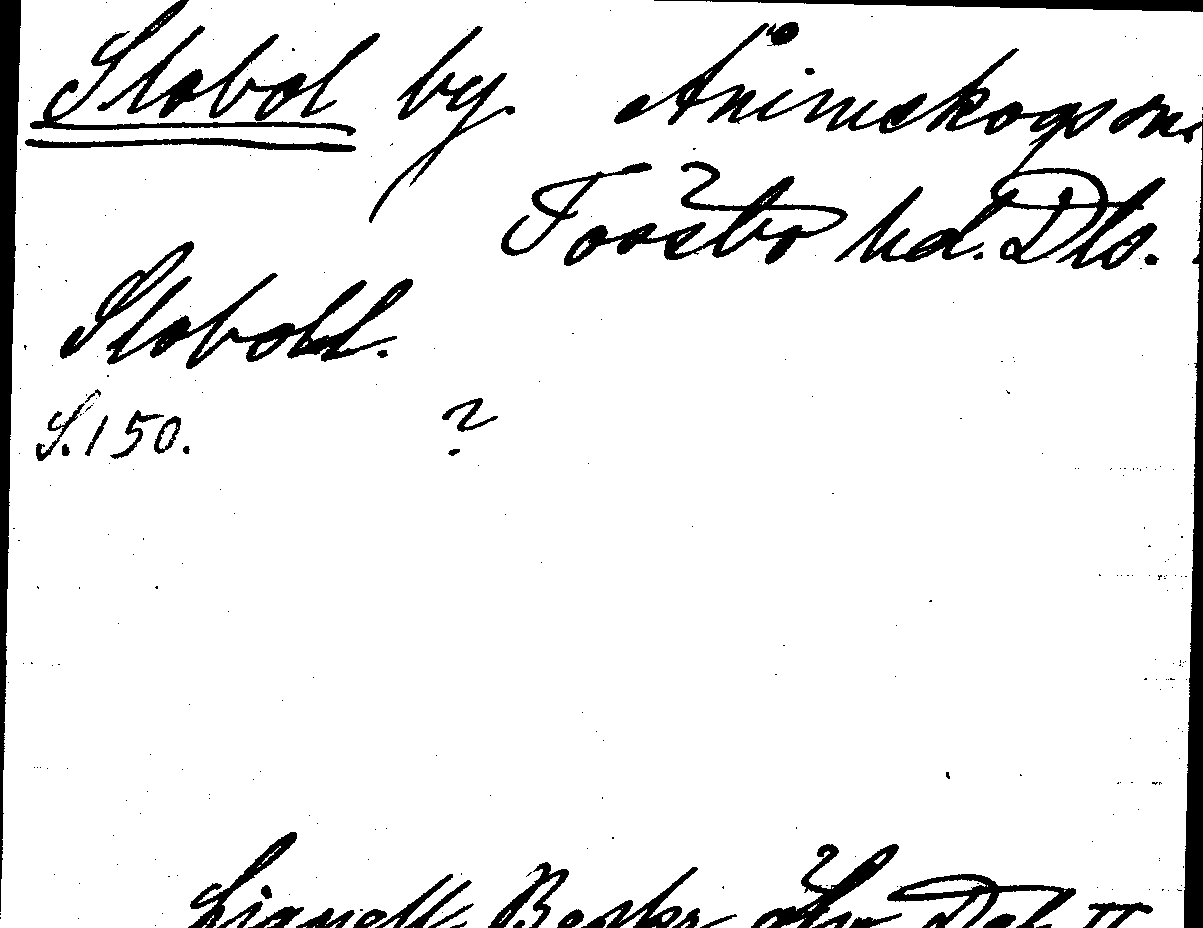 Slobol by. Ånimskogs sn.
Tössbo hd. Dls.
Sloboll.
S. 150. ?
Lignell, Beskr. öfv. Dal. II